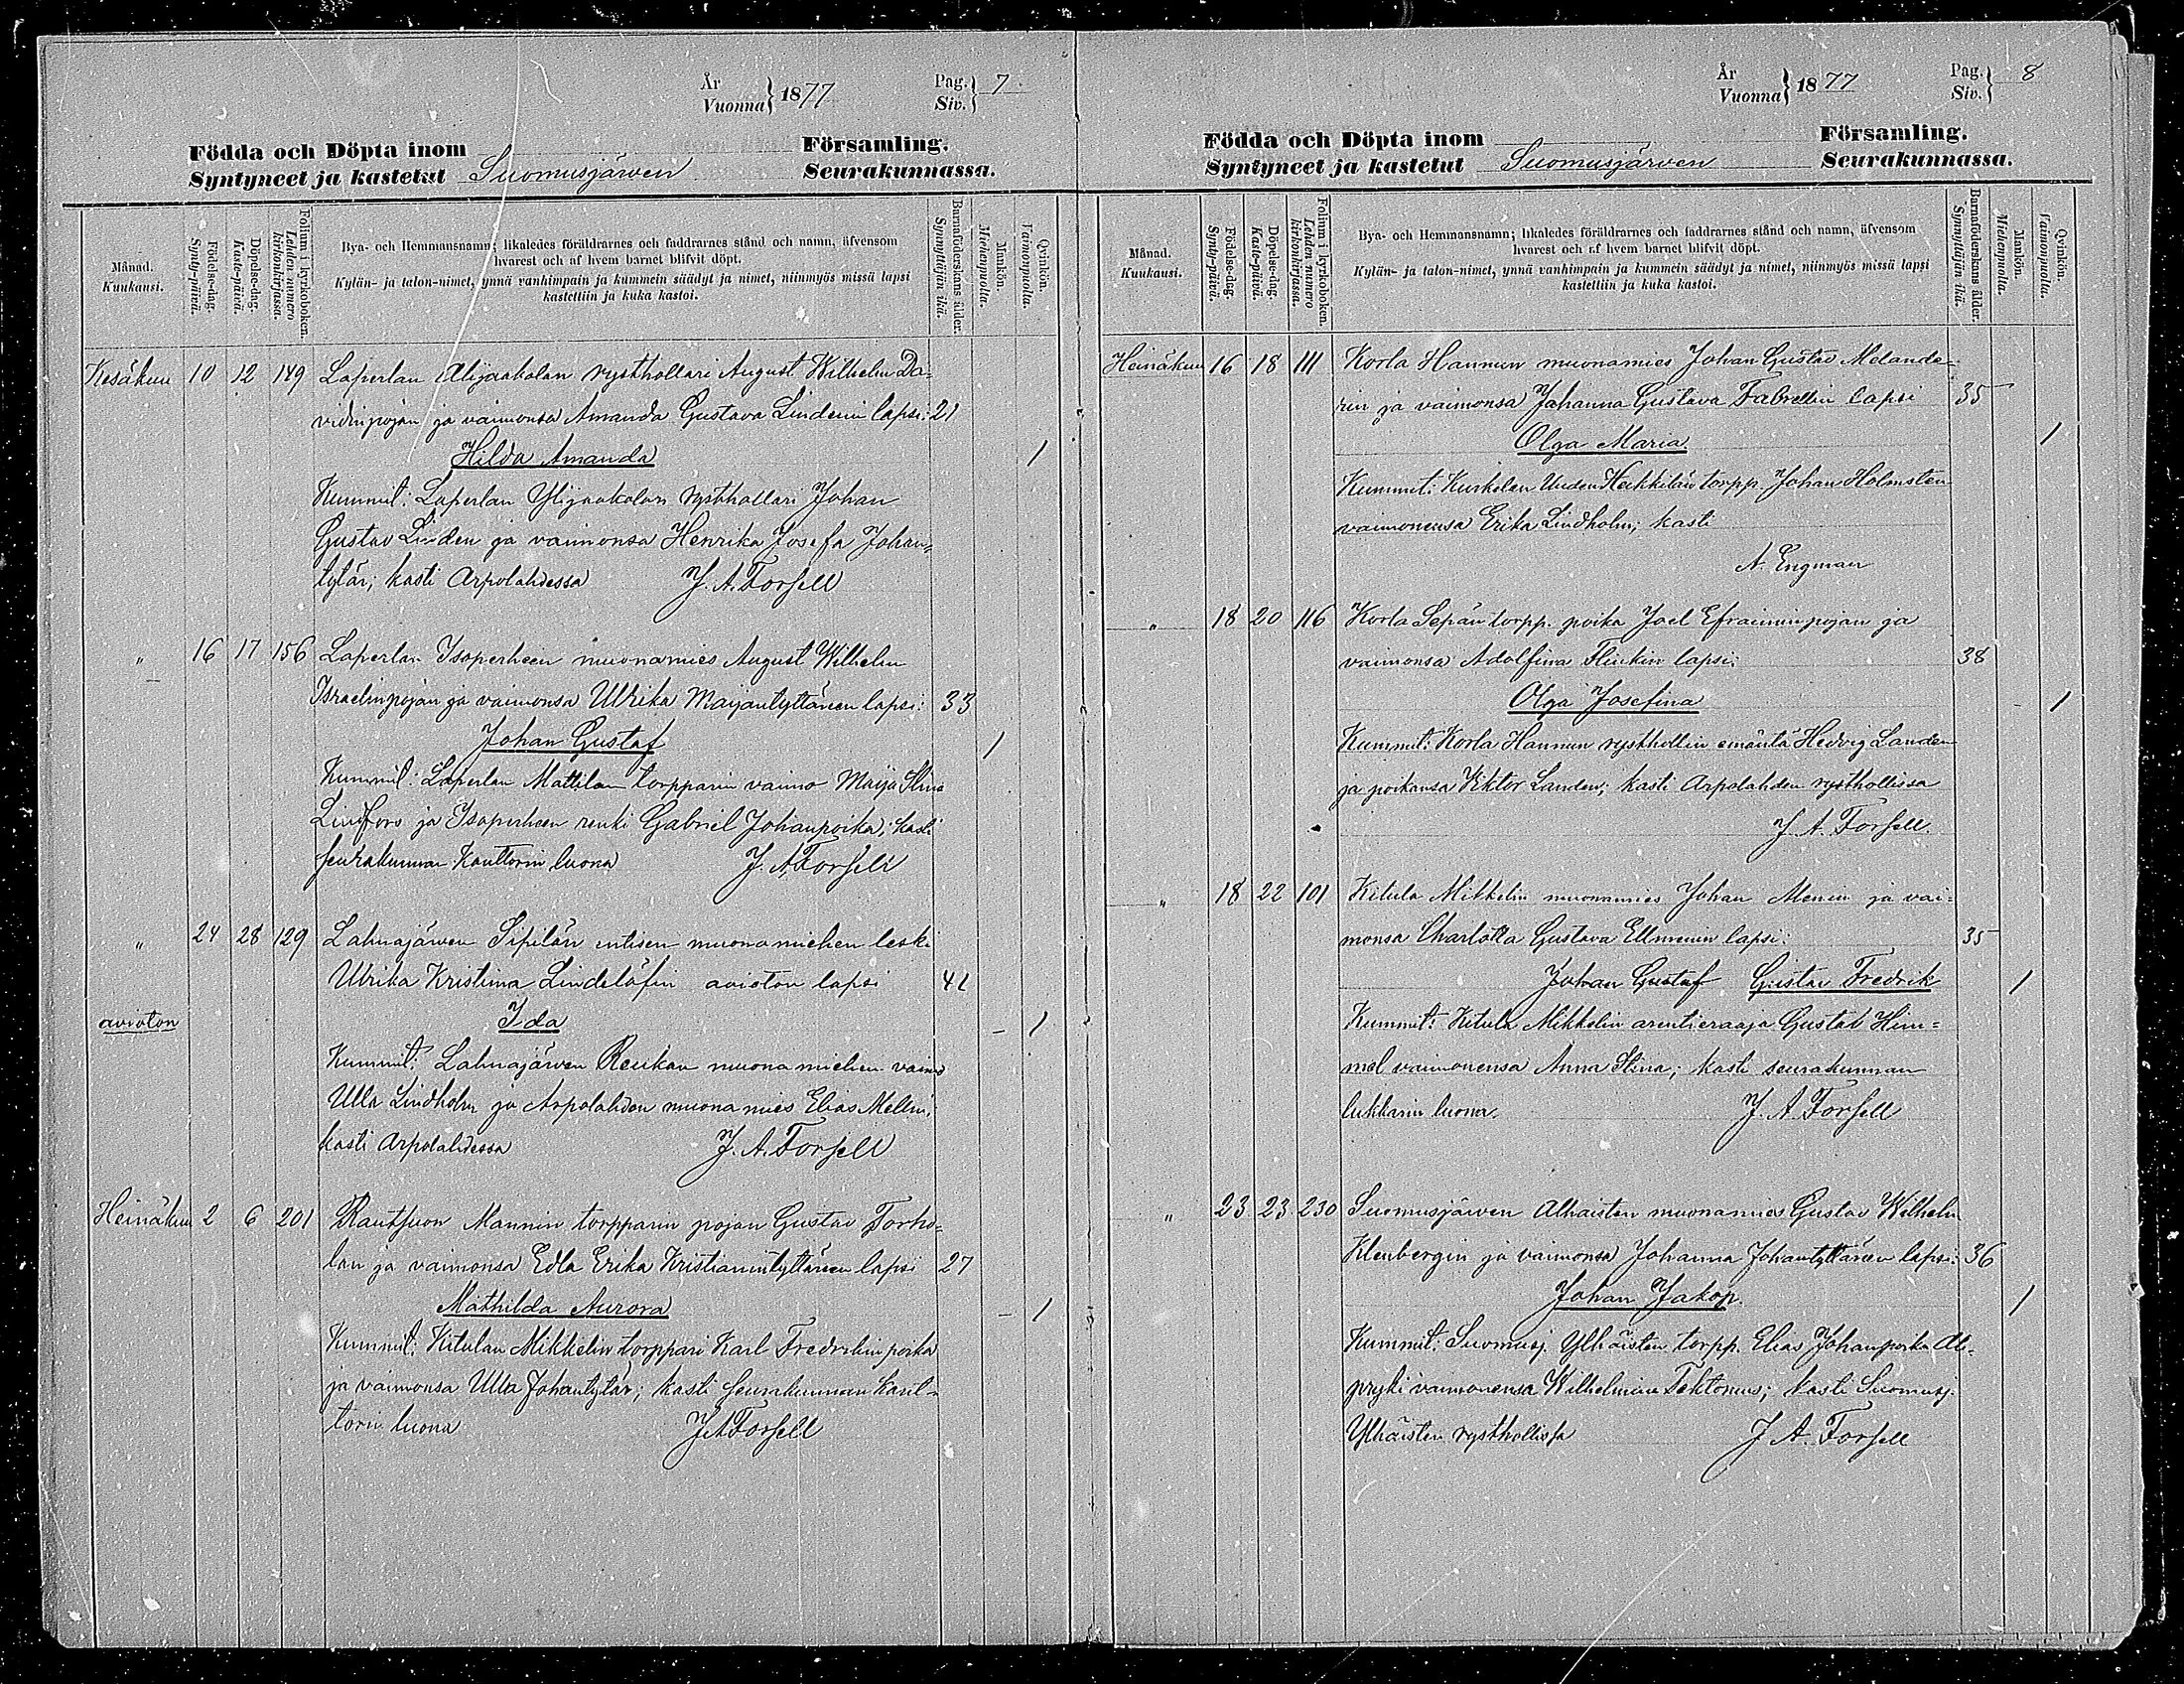 År
Vuonna } 1877
Pag.
Siv. } 7.
Födda och Döpta inom Församling.
Syntyneet ja kastetut Suomusjärwen Seurakunnassa.
Månad.
Kuukausi.
Födelse-dag.
Synty-päivä.
Döpelse-dag.
Kaste-päivä.
Folium i kyrkoboken.
Lehden numero
kirkonkirjassa.
Bya- och Hemmansnamn; likaledes föräldrarnes och faddrarnes stånd och namn, äfvensom
hvarest och af hvem barnet blifvit döpt.
Kylän- ja talon-nimet, ynnä vanhimpain ja kummein säädyt ja nimet, niinmyös missä lapsi
kastettiin ja kuka kastoi.
Barnaföderskans ålder.
Synnyttäjän ikä.
Mankön.
Miehenpuolta.
Qvinkön.
Vaimonpuolta.
Kesäkuu 10 12 149 Laperlan Alijaakolan rysthollari August Wilhelm Da-
vidinpojan ja vaimonsa Amanda Gustava Lindenin lapsi: 21
Hilda Amanda 1
Kummit: Laperlan Ylijaakolan rysthollari Johan
Gustav Linden ja vaimonsa Henrika Josefa Johan-
tytär; kasti Arpolahdessa J. A. Forsell
" 16 17 156 Laperlan Isoperheen muonamies August Wilhelm
Israelinpojan ja vaimonsa Ulrika Maijantyttären lapsi: 33
Johan Gustaf 1
Kummit: Laperlan Mattilan torpparin vaimo Maija Stina
Lindfors ja Isoperheen renki Gabriel Johanpoika; kasti
seurakunnan Kanttorin luona J. A. Forsell
" 24 28 129 Lahnajärwen Sipilän entisen muonamiehen leski
Ulrika Kristiina Lindelöfin avioton lapsi 41
avioton Ida – 1
Kummit: Lahnajärwen Reukan muonamiehen vaimo
Ulla Lindholm ja Arpolahden muonamies Elias Mellin;
kasti Arpolahdessa J. A. Forsell
Heinäkuu 2 6 201 Rautsuon Mannin torpparin pojan Gustav Torho-
lan ja vaimonsa Edla Erika Kristianintyttären lapsi 27
Mathilda Aurora – 1
Kummit: Kitulan Mikkelin torppari Karl Fredrikin poika
ja vaimonsa Ulla Johantytär; kasti seurakunnan kant-
torin luona J A Forsell
År
Vuonna } 1877
Pag.
Siv. } 8
Födda och Döpta inom Församling.
Syntyneet ja kastetut Suomusjärven Seurakunnassa.
Månad.
Kuukausi.
Födelse-dag.
Synty-päivä.
Döpelse-dag.
Kaste-päivä.
Folium i kyrkoboken.
Lehden numero
kirkonkirjassa.
Bya- och Hemmansnamn; likaledes föräldrarnes och faddrarnes stånd och namn, äfvensom
hvarest och af hvem barnet blifvit döpt.
Kylän- ja talon-nimet, ynnä vanhimpain ja kummein säädyt ja nimet, niinmyös missä lapsi
kastettiin ja kuka kastoi.
Barnaföderskans ålder.
Synnyttäjän ikä.
Mankön.
Miehenpuolta.
Qvinkön.
Vaimonpuolta.
Heinäkuu 16 18 111 Korla Hannun muonamies Johan Gustav Melande-
rin ja vaimonsa Johanna Gustava Fabrellin lapsi 35
Olga Maria 1
Kummit: Kurkelan Uuden Heikkilän torpp. Johan Holmsten
vaimonensa Erika Lindholm; kasti
A. Engman
" 18 20 116 Korla Sepän torpp. poika Joel Efraiminpojan ja
vaimonsa Adolfina Flinkin lapsi: 38
Olga Josefina 1
Kummit: Korla Hannun rysthollin emäntä Hedvig Landen
ja poikansa Viktor Landen; kasti Arpolahden rysthollissa
J. A. Forsell.
" 18 22 101 Kitula Mikkelin muonamies Johan Menin ja vai-
monsa Charlotta Gustava Ellmenin lapsi: 35
Johan Gustaf Gustav Fredrik 1
Kummit: Kitula Mikkelin arentieraaja Gustav Him-
mel vaimonensa Anna Stina; kasti seurakunnan
lukkarin luona. J. A. Forsell
" 23 23 230 Suomusjärven Alhaisten muonamies Gustav Wilhelm
Klenbergin ja vaimonsa Johanna Johantyttären lapsi: 36
Johan Jakop. 1
Kummit: Suomusj. Ylhäisten torpp. Elias Johanpoika Ali-
pryki vaimonensa Wilhelmina Tektonius; kasti Suomusj.
Ylhäisten rysthollissa J A. Forsell